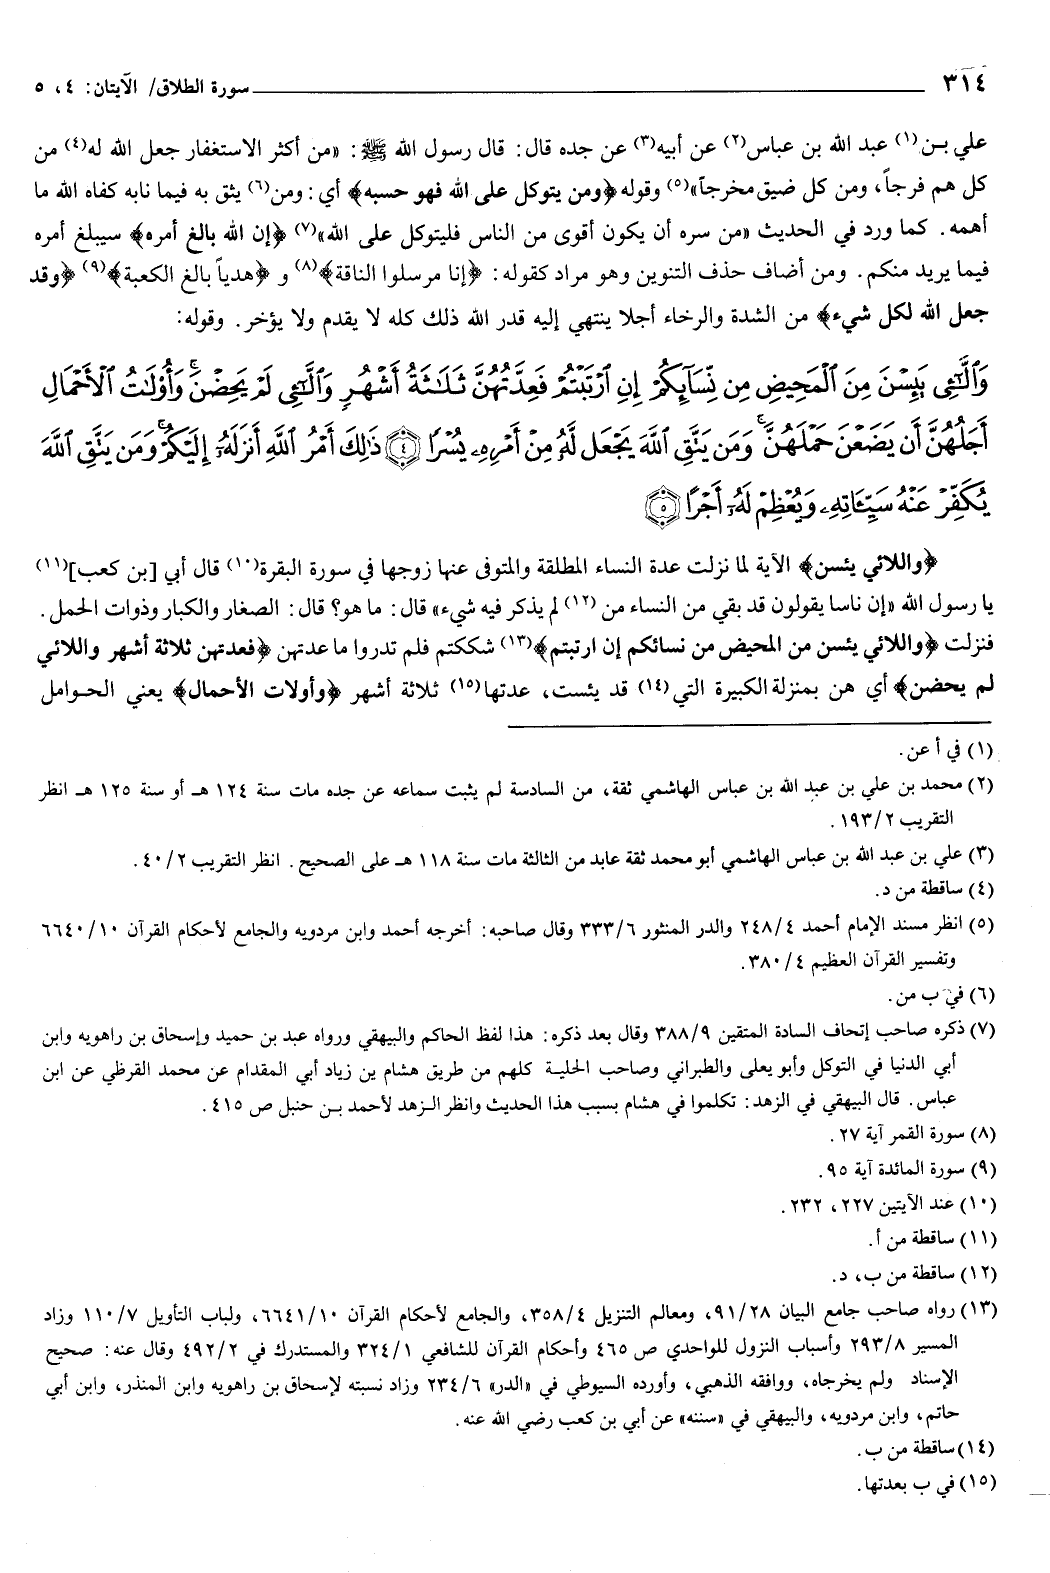 ٣١٤ سورة الطلاق/ الآيتان: ٤، ٥
علي بـن(١) عبد الله بن عباس(٢) عن أبيه(٣) عن جده قال: قال رسول الله ﷺ: «من أكثر الاستغفار جعل الله له(٤) من
كل هم فرجاً، ومن كل ضيق مخرجاً»(٥) وقوله ﴿ومن يتوكل على الله فهو حسبه﴾ أي: ومن(٦) يثق به فيما نابه كفاه الله ما
أهمه. كما ورد في الحديث «من سره أن يكون أقوى من الناس فليتوكل على الله»(٧) ﴿إن الله بالغ أمره﴾ سيبلغ أمره
فيما يريد منكم. ومن أضاف حذف التنوين وهو مراد كقوله: ﴿إنا مرسلوا الناقة﴾(٨) و ﴿هدياً بالغ الكعبة﴾(٩) ﴿وقد
جعل الله لكل شيء﴾ من الشدة والرخاء أجلا ينتهي إليه قدر الله ذلك كله لا يقدم ولا يؤخر. وقوله:
وَٱلَّٰٓـِٔى يَئِسْنَ مِنَ ٱلْمَحِيضِ مِن نِّسَآئِكُمْ إِنِ ٱرْتَبْتُمْ فَعِدَّتُهُنَّ ثَلَٰثَةُ أَشْهُرٍ وَٱلَّٰٓـِٔى لَمْ يَحِضْنَ ۚ وَأُو۟لَٰتُ ٱلْأَحْمَالِ
أَجَلُهُنَّ أَن يَضَعْنَ حَمْلَهُنَّ ۚ وَمَن يَتَّقِ ٱللَّهَ يَجْعَل لَّهُۥ مِنْ أَمْرِهِۦ يُسْرًا ﴿٤﴾ ذَٰلِكَ أَمْرُ ٱللَّهِ أَنزَلَهُۥٓ إِلَيْكُمْ ۚ وَمَن يَتَّقِ ٱللَّهَ
يُكَفِّرْ عَنْهُ سَيِّـَٔاتِهِۦ وَيُعْظِمْ لَهُۥٓ أَجْرًا ﴿٥﴾
﴿واللائي يئسن﴾ الآية لما نزلت عدة النساء المطلقة والمتوفى عنها زوجها في سورة البقرة(١٠) قال أبي [بن كعب](١١)
يا رسول الله «إن ناسا يقولون قد بقي من النساء من(١٢) لم يذكر فيه شيء» قال: ما هو؟ قال: الصغار والكبار وذوات الحمل.
فنزلت ﴿واللائي يئسن من المحيض من نسائكم إن ارتبتم﴾(١٣) شككتم فلم تدروا ما عدتهن ﴿فعدتهن ثلاثة أشهر واللائي
لم يحضن﴾ أي هن بمنزلة الكبيرة التي(١٤) قد يئست، عدتها(١٥) ثلاثة أشهر ﴿وأولات الأحمال﴾ يعني الحـوامل
(١) في أ عن.
(٢) محمد بن علي بن عبد الله بن عباس الهاشمي ثقة، من السادسة لم يثبت سماعه عن جده مات سنة ١٢٤ هـ أو سنة ١٢٥ هـ انظر
التقريب ١٩٣/٢.
(٣) علي بن عبد الله بن عباس الهاشمي أبو محمد ثقة عابد من الثالثة مات سنة ١١٨ هـ على الصحيح. انظر التقريب ٤٠/٢.
(٤) ساقطة من د.
(٥) انظر مسند الإمام أحمد ٢٤٨/٤ والدر المنثور ٣٣٣/٦ وقال صاحبه: أخرجه أحمد وابن مردويه والجامع لأحكام القرآن ٦٦٤٠/١٠
وتفسير القرآن العظيم ٣٨٠/٤.
(٦) في ب من.
(٧) ذكره صاحب إتحاف السادة المتقين ٣٨٨/٩ وقال بعد ذكره: هذا لفظ الحاكم والبيهقي ورواه عبد بن حميد وإسحاق بن راهويه وابن
أبي الدنيا في التوكل وأبو يعلى والطبراني وصاحب الحليـة كلهم من طريق هشام بن زياد أبي المقدام عن محمد القرظي عن ابن
عباس. قال البيهقي في الزهد: تكلموا في هشام بسبب هذا الحديث وانظر الـزهد لأحمد بـن حنبل ص ٤١٥.
(٨) سورة القمر آية ٢٧.
(٩) سورة المائدة آية ٩٥.
(١٠) عند الآيتين ٢٢٧، ٢٣٢.
(١١) ساقطة من أ.
(١٢) ساقطة من ب، د.
(١٣) رواه صاحب جامع البيان ٩١/٢٨، ومعالم التنزيل ٣٥٨/٤، والجامع لأحكام القرآن ٦٦٤١/١٠، ولباب التأويل ١١٠/٧ وزاد
المسير ٢٩٣/٨ وأسباب النزول للواحدي ص ٤٦٥ وأحكام القرآن للشافعي ٣٢٤/١ والمستدرك في ٤٩٢/٢ وقال عنه: صحيح
الإسناد ولم يخرجاه، ووافقه الذهبي، وأورده السيوطي في «الدر» ٢٣٤/٦ وزاد نسبته لإسحاق بن راهويه وابن المنذر، وابن أبي
حاتم، وابن مردويه، والبيهقي في «سننه» عن أبي بن كعب رضي الله عنه.
(١٤) ساقطة من ب.
(١٥) في ب بعدتها.